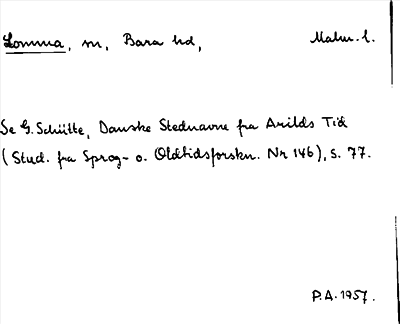 Lomma, sn, Bara hd, Malm. l.
Se G. Schütte, Danske Stednavne fra Arilds Tid
(Stud. fra Sprog- o. Oldtidsforskn. Nr 146), s. 77.
P.A. 1957.